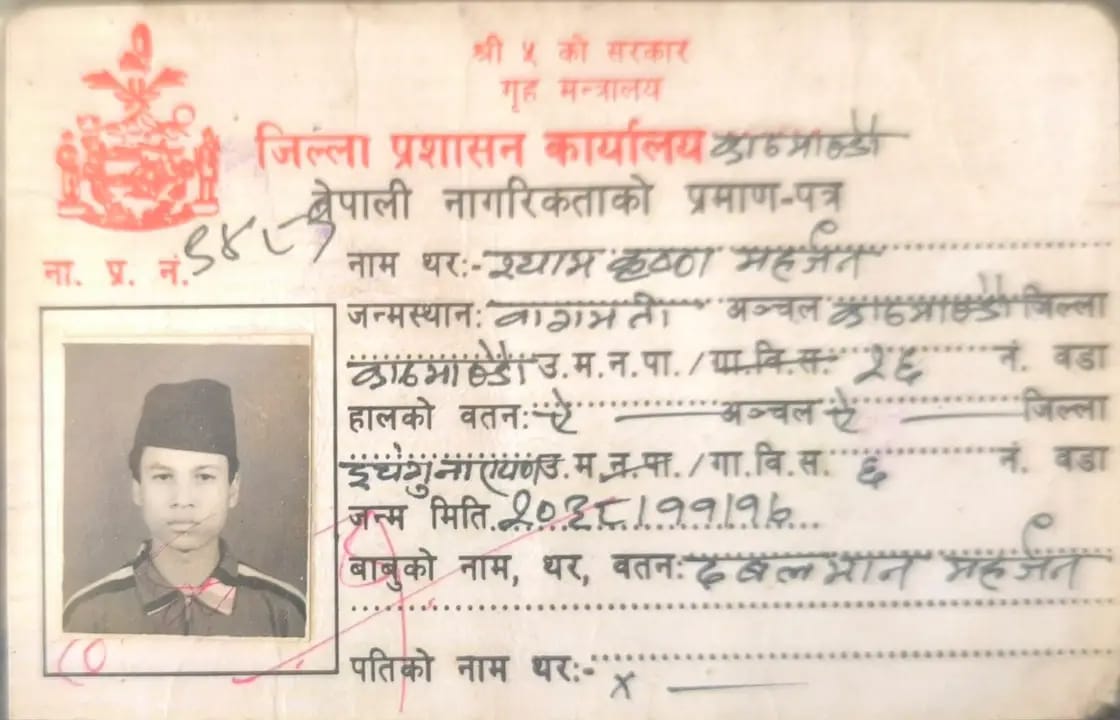 श्री ५ को सरकार
गृह मन्त्रालय
जिल्ला प्रशासन कार्यालय काठमाण्डौ
नेपाली नागरिकताको प्रमाण-पत्र
ना. प्र. नं.
नाम थर:- श्याम कृष्ण महर्जन
जन्मस्थान: बागमती अञ्चल काठमाण्डौ जिल्ला
काठमाण्डौ उ.म.न.पा./गा.वि.स. २६ नं. वडा
हालको वतन:- ऐ अञ्चल ऐ जिल्ला
इचंगुनारायण उ.म.न.पा./गा.वि.स. ६ नं. वडा
जन्म मिति. २०३८।११।१६
बाबुको नाम, थर, वतन: महर्जन
पतिको नाम थर:- x